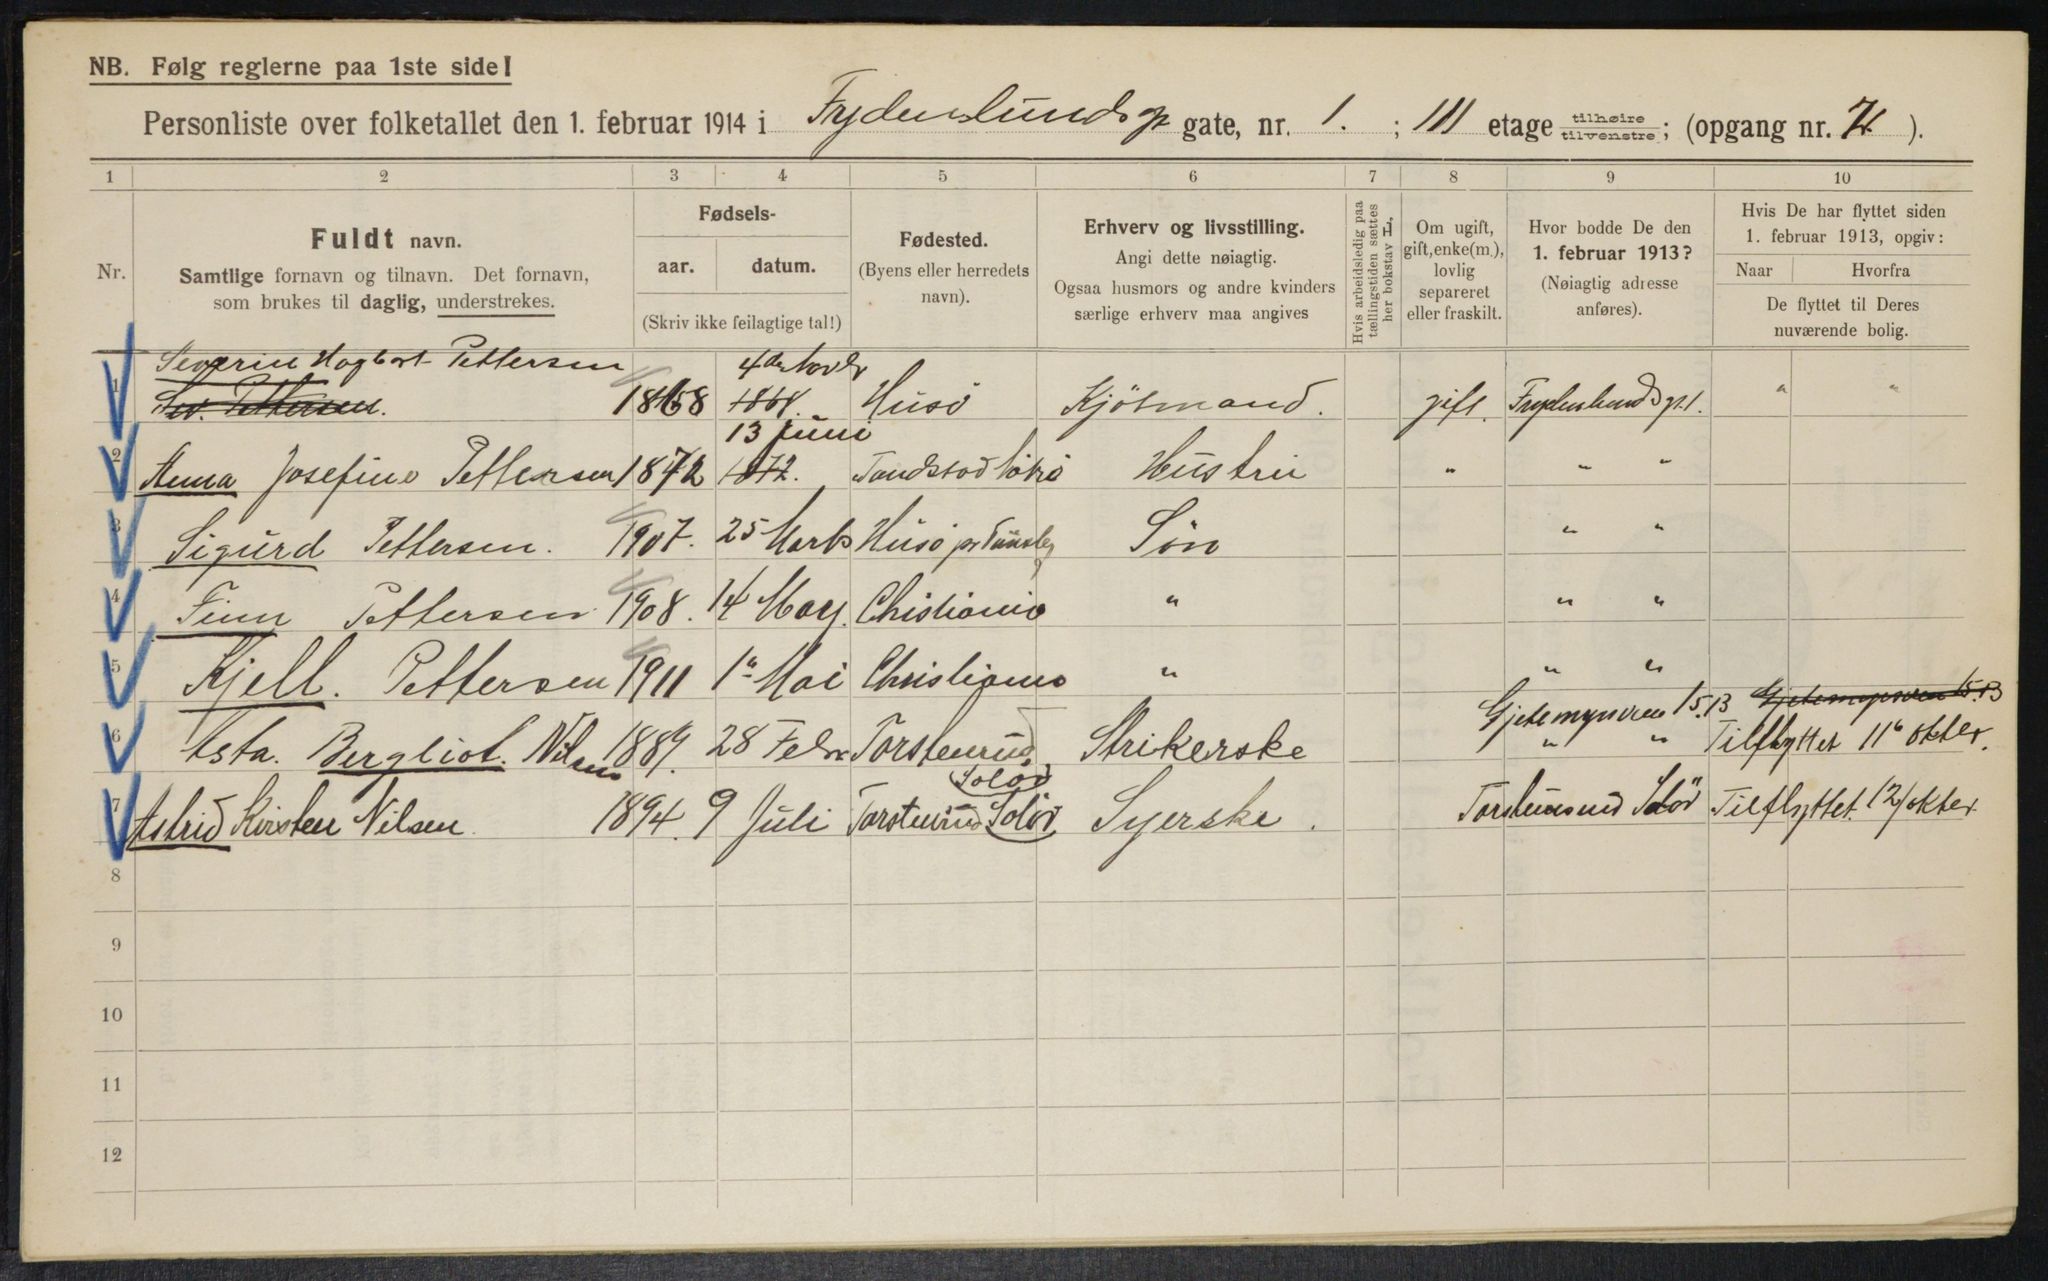 NB. Følg reglerne paa 1ste side!
Personliste over folketallet den 1. februar 1914 i Frydenlundsgt gate, nr. 1. ; III etage tilhøire / tilvenstre; (opgang nr. ).
1 2 3 4 5 6 7 8 9 10
Nr.
Fuldt navn.
Samtlige fornavn og tilnavn. Det fornavn,
som brukes til daglig, understrekes.
Fødsels-
aar. datum.
(Skriv ikke feilagtige tal!)
Fødested.
(Byens eller herredets
navn).
Erhverv og livsstilling.
Angi dette nøiagtig.
Ogsaa husmors og andre kvinders
særlige erhverv maa angives
Hvis arbeidsledig paa
tællingstiden sættes
her bokstav L,
Om ugift,
gift, enke(m.),
lovlig
separeret
eller fraskilt.
Hvor bodde De den
1. februar 1913?
(Nøiagtig adresse
anføres).
Hvis De har flyttet siden
1. februar 1913, opgiv:
Naar Hvorfra
De flyttet til Deres
nuværende bolig.
Severin Hagbart Pettersen 4de Novbr
1 Sev. Pettersen. 1868 1868. Husö Kjötmand. gift. Frydenlundsgt. 1. " "
13 Juni
2 Anna Josefine Pettersen 1872 1872. Hustru " " "
3 Sigurd Pettersen. 1907. 25 Marts Husö pr Tönsberg Sön " "
4 Finn Pettersen 1908. 14 May. Chistiania " " "
5 Kjell. Pettersen 1911 1" Mai Christiania " " "
Gjetemyrsveien 15.13 Gjetemyrsveien 15.13
6 Asta. Bergliot. Nilsen 1889. 28 Febr Torstenrud, Solör Strikerske " " Tilflyttet 11" oktbr.
7 Astrid Kirsten Nilsen 1894. 9 Juli Torstenrud Solör Syerske. Solör Tilflyttet 12/oktbr
8
9
10
11
12